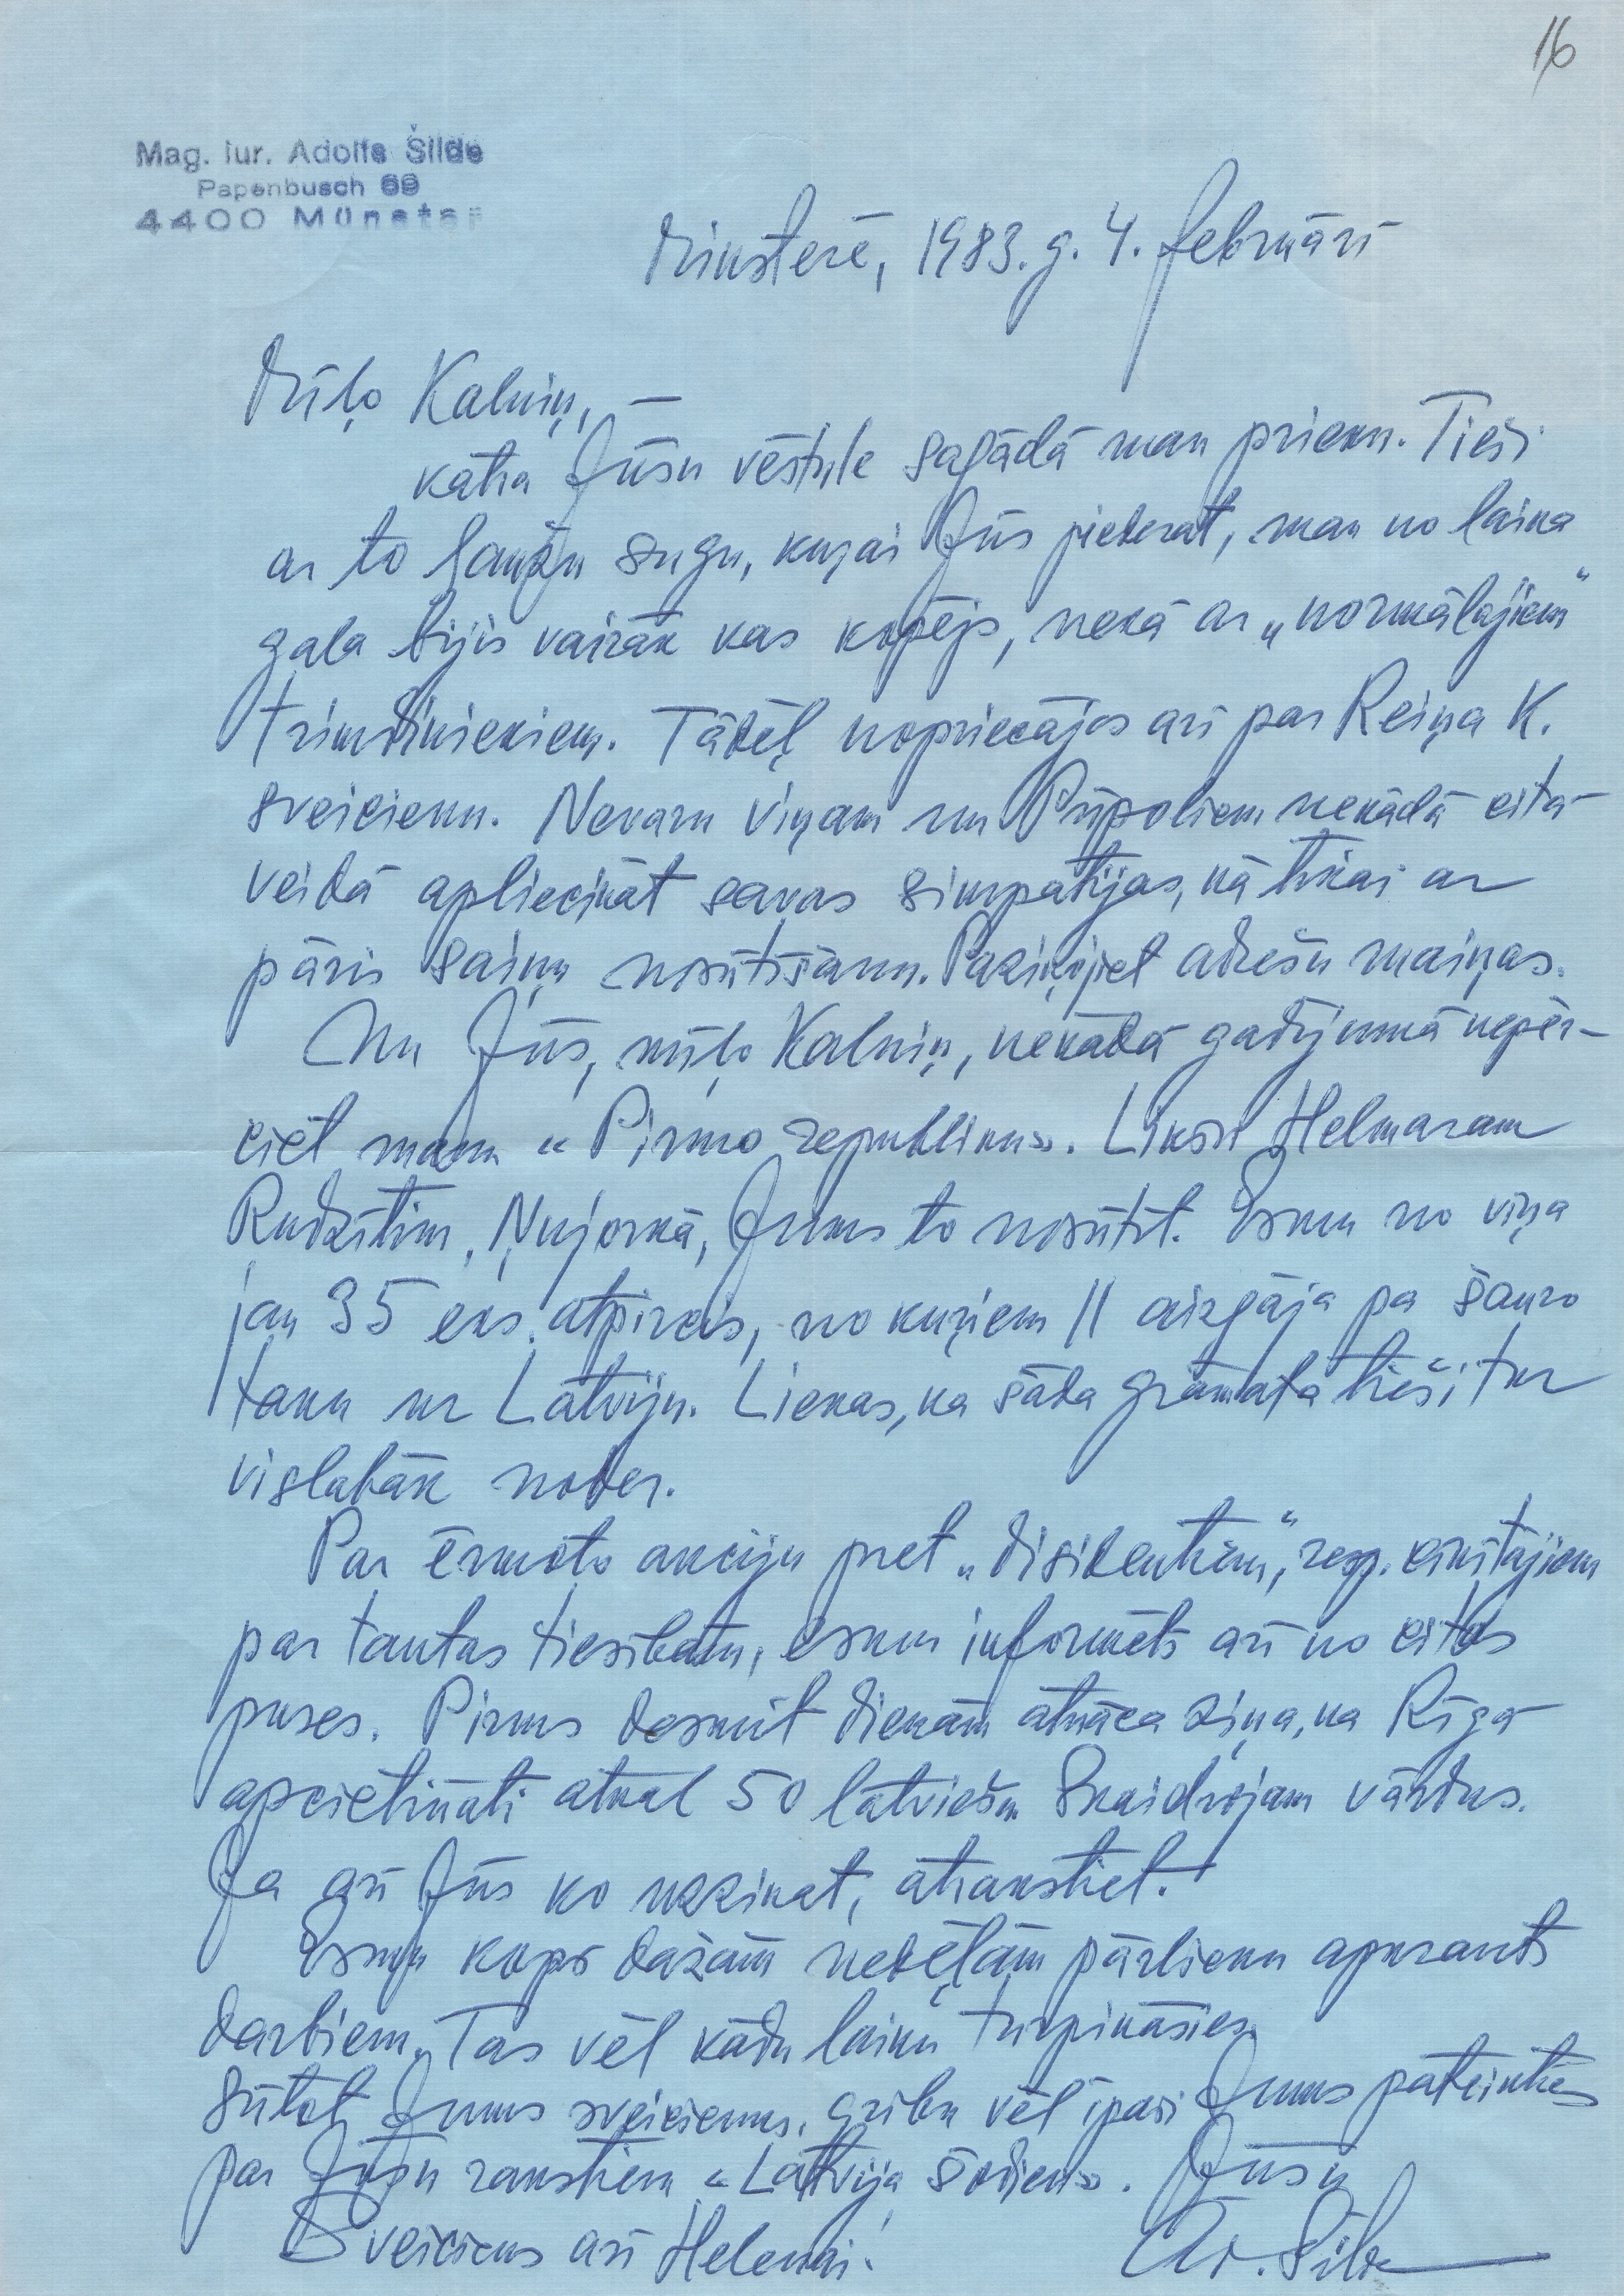 16
Mag. iur. Adolfs Šilde
Papenbusch 69
4400 Münster
Minsterē, 1983. g. 4. februārī
Mīļo Kalniņ, —
katra Jūsu vēstule sagādā man prieku. Tieši
ar to ļaužu sugu, kuŗai Jūs piederat, man no laika
gala bijis vairāk kas kopējs, nekā ar „normālajiem"
trimdiniekiem. Tādēļ nopriecājos arī par Reiņa K.
sveicienu. Nevaru viņam un Pūpoliem nekādā citā
veidā apliecināt savas simpātijas, kā tikai ar
pāris saiņu nosūtīšanu. Paziņojiet adrešu maiņas.
Un Jūs, mīļo Kalniņ, nekādā gadījumā nepēr-
ciet manu «Pirmo republiku». Likšu Helmaram
Rudzītim, Ņujorkā, Jums to nosūtīt. Esmu no viņa
jau 35 eks. atpircis, no kuŗiem 11 aizgāja pa šauro
taku uz Latviju. Liekas, ka šāda grāmata tieši tur
vislabāk noder.
Par ērmoto akciju pret „disidentiem", resp. cīnītājiem
par tautas tiesībām, esmu informēts arī no citas
puses. Pirms desmit dienām atnāca ziņa, ka Rīgā
apcietināti atkal 50 latviešu. Skaidrojam vārdus.
Ja arī Jūs ko uzzinat, atrakstiet!
Esmu kopš dažām nedēļām pārlieku apkrauts
darbiem. Tas vēl kādu laiku turpināsies.
Sūtot Jums sveicienus, gribu vēl īpaši Jums pateikties
par Jūsu rakstiem «Latvija šodien». Jūsu
Sveiciens arī Helenai! Ād. Šilde